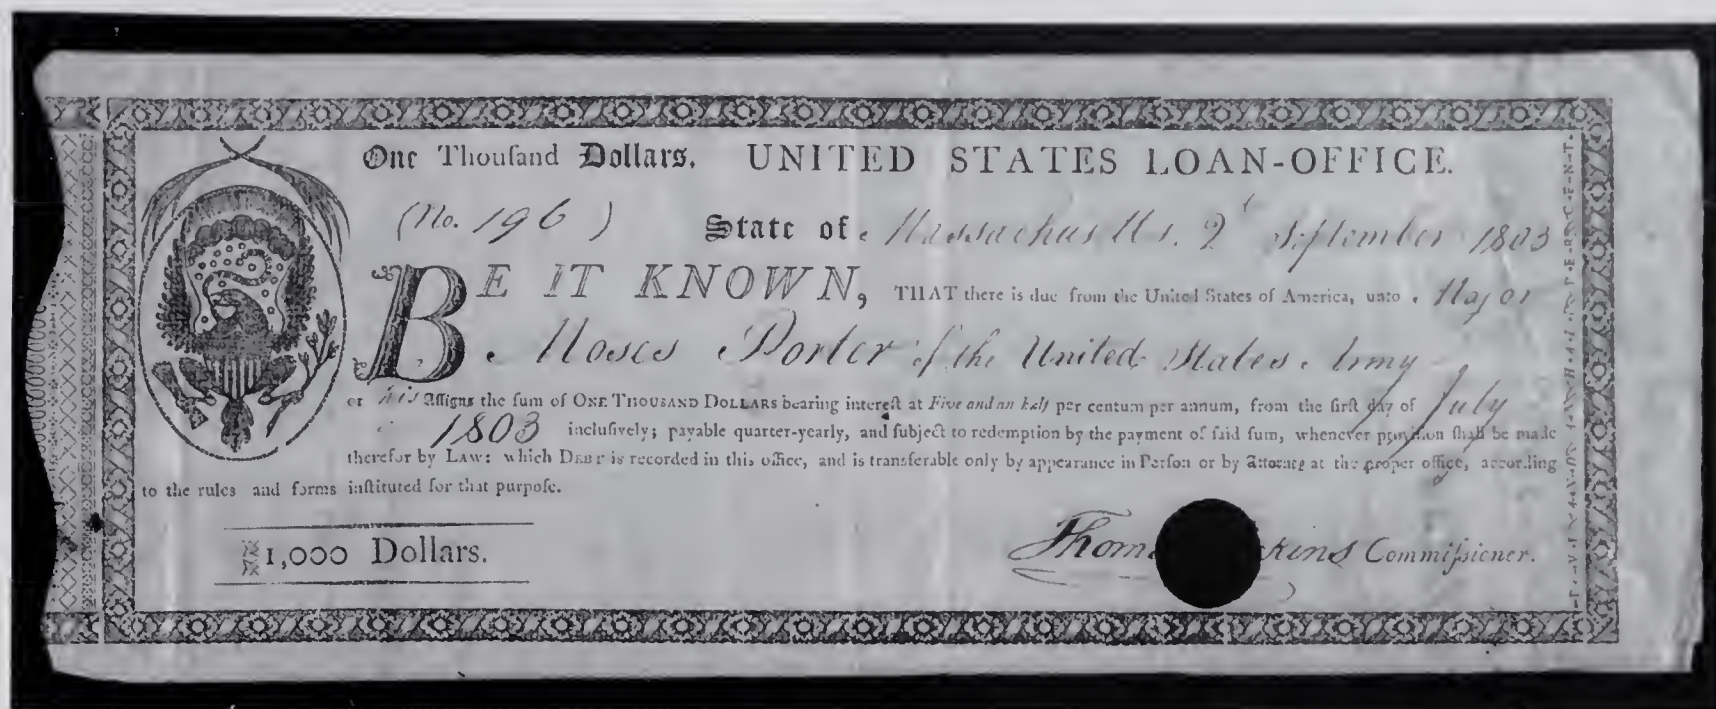 One Thouſand Dollars. UNITED STATES LOAN-OFFICE.
(No. 196) State of Massachusetts. 2d September 1803
BE IT KNOWN, THAT there is due from the United States of America, unto Major
Moses Porter of the United States Army
or his Aſſigns the ſum of ONE THOUSAND DOLLARS bearing intereſt at Five and an half per centum per annum, from the firſt day of July
1803 incluſively; payable quarter-yearly, and ſubject to redemption by the payment of ſaid ſum, whenever proviſion ſhall be made
therefor by LAW: which DEBT is recorded in this office, and is transferable only by appearance in Perſon or by Attorney at the proper office, according
to the rules and forms inſtituted for that purpoſe.
1,000 Dollars.
Thom kins Commiſsioner.